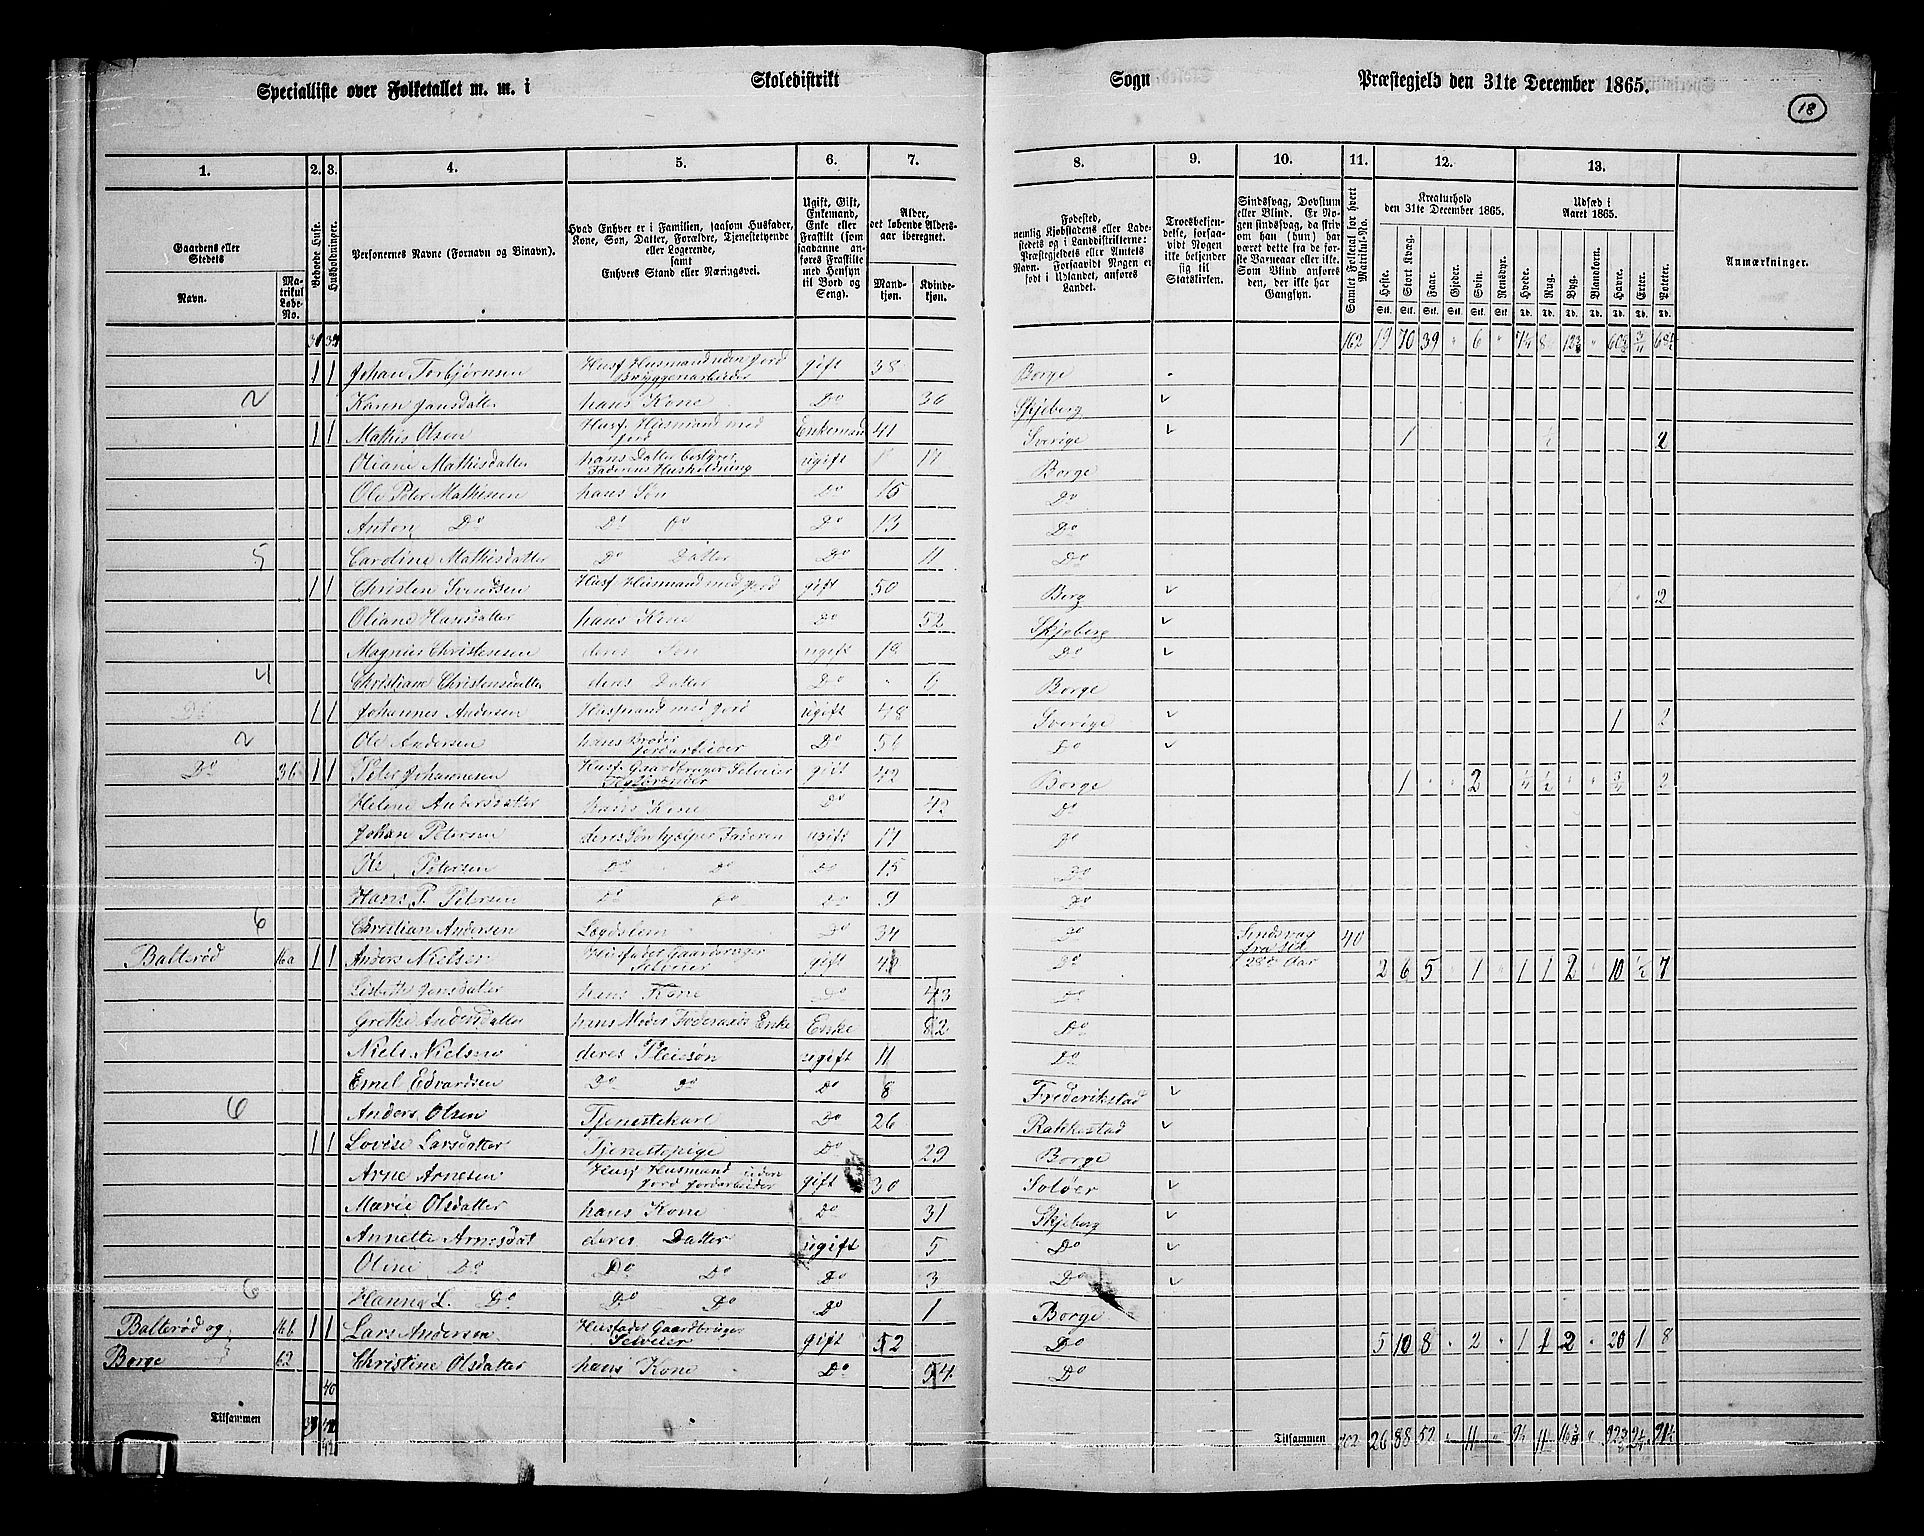 Specialliste over Folketallet m. m. i Skoledistrikt Sogn Præstegjeld den 31te December 1865.
18
1. 2. 3. 4. 5. 6. 7. 8. 9. 10. 11. 12. 13.
Gaardens eller Stedets
Navn.
Matrikul Løbe-No.
Beboede Huse.
Husholdninger.
Personernes Navne (Fornavn og Binavn).
Hvad Enhver er i Familien, saasom Husfader, Kone, Søn, Datter, Forældre, Tjenestetyende eller Logerende, samt Enhvers Stand eller Næringsvei.
Ugift, Gift, Enkemand, Enke eller Fraskilt (som saadanne anføres Fraskilte med Hensyn til Bord og Seng).
Alder, det løbende Alders-aar iberegnet.
Mandkjøn. Kvindekjøn.
Fødested, nemlig Kjøbstadens eller Ladestedets og i Landdistrikterne: Præstegjeldets eller Amtets Navn. Forsaavidt Nogen er født i Udlandet, anføres Landet.
Troesbekjendelse, forsaavidt Nogen ikke bekjender sig til Statskirken.
Sindssvag, Døvstum eller Blind. Er Nogen sindssvag, da skriv om han (hun) har været dette fra de første Barneaar eller ikke. Som Blind anføres den, der ikke har Gangsyn.
Samlet Folketal for hvert Matrikul-No.
Kreaturhold den 31te December 1865.
Heste. Stort Kvæg. Faar. Gjeder. Svin. Rensdyr.
Udsæd i Aaret 1865.
Hvede. Rug. Byg. Blandkorn. Havre. Erter. Poteter.
Anmærkninger.
162 19 70 39 " 6 "
1 1 Johan Torbjørnsen Husf Husmand uden Jord Bryggenarbeider gift 38 Borge
2 Karen Jansdatter hans Kone Do 36 Skjeberg
1 1 Mathis Olsen Husf. Husmand med Jord Enkemand 41 Sverige 1 ½ 2
Oliane Mathisdatter hans Datter bestyrer Faderens Husholdning ugift 17 Borge
Ole Peter Mathisen hans Søn Do 15 Do
Anton Do Do Do Do 13 Do
5 Caroline Mathisdatter Do Datter Do 11 Do
1 1 Christen Svendsen Husf Husmand med Jord gift 50 Berg 2
Oliane Hansdatter hans Kone Do 52 Skjeberg
Magnus Christensen deres Søn ugift 18 Do
4 Christiane Christensdatter deres Datter Do Borge
Do 1 1 Johannes Andersen Husmand med Jord ugift 48 Sverige 1 2
2 Ole Andersen hans Broder Jordarbeider Do 56 Do
Do 36 1 1 Peter Johannesen Husf. Gaardbruger Selveier gift 42 Borge 1 " " 2 " ¼ ½ " " ¾ " 2
Helene Andersdatter hans Kone Do 42 Do
Johan Petersen deres Søn hjælper Faderen ugift 17 Do
Ole Petersen Do Do Do 15 Do
Hans P. Petersen Do Do Do 9 Do
6 Christian Andersen Lægdslem Do 34 Do Sindsvag fra sit 28de Aar 40
Balterød 16a 1 1 Anders Nielsen Husfader Gaardbruger Selveier gift 49 Do 2 6 5 " 1 " 1 1 2 " 10 ½ 7
Lisbeth Jensdatter hans Kone Do 43 Do
Grethe Andersdatter hans Moder Føderaads Enke Enke 82 Do
Niels Nielsen deres Pleiesøn ugift 11 Do
Emel Edvardsen Do Do Do 8 Frederikstad
6 Anders Olsen Tjenestekarl Do 26 Rakkestad
1 1 Lovise Larsdatter Tjenestepige Do 29 Borge
Arne Arnesen Husf Husmand uden Jord Jordarbeider gift 30 Soløer
Marie Olsdatter hans Kone Do 31 Skjeberg
Annette Arnesdat deres Datter ugift 5 Do
Oline Do Do Do Do 3 Do
6 Hanna L. Do Do Do Do 1 Borge
Balterød og 16b 1 1 Lars Andersen Husfader Gaardbruger Selveier gift 52 Do 5 10 8 " 2 " 1 1 2 " 20 1 8
Borge 62 Christine Olsdatter hans Kone Do 54 Do
40
Tilsammen 39 42 Tilsammen 202 26 88 52 " 11 "